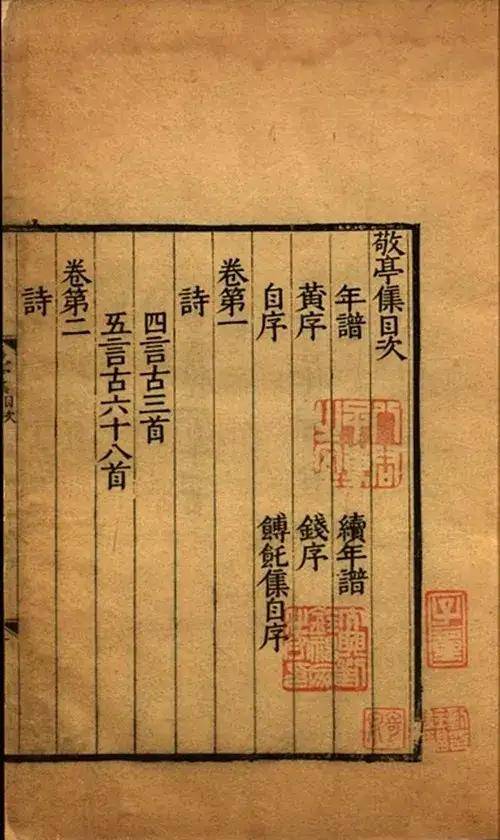 敬亭集目次
年譜 續年譜
黃序 錢序
自序 餺飥集自序
卷第一
詩
四言古三首
五言古六十八首
卷第二
詩
目次